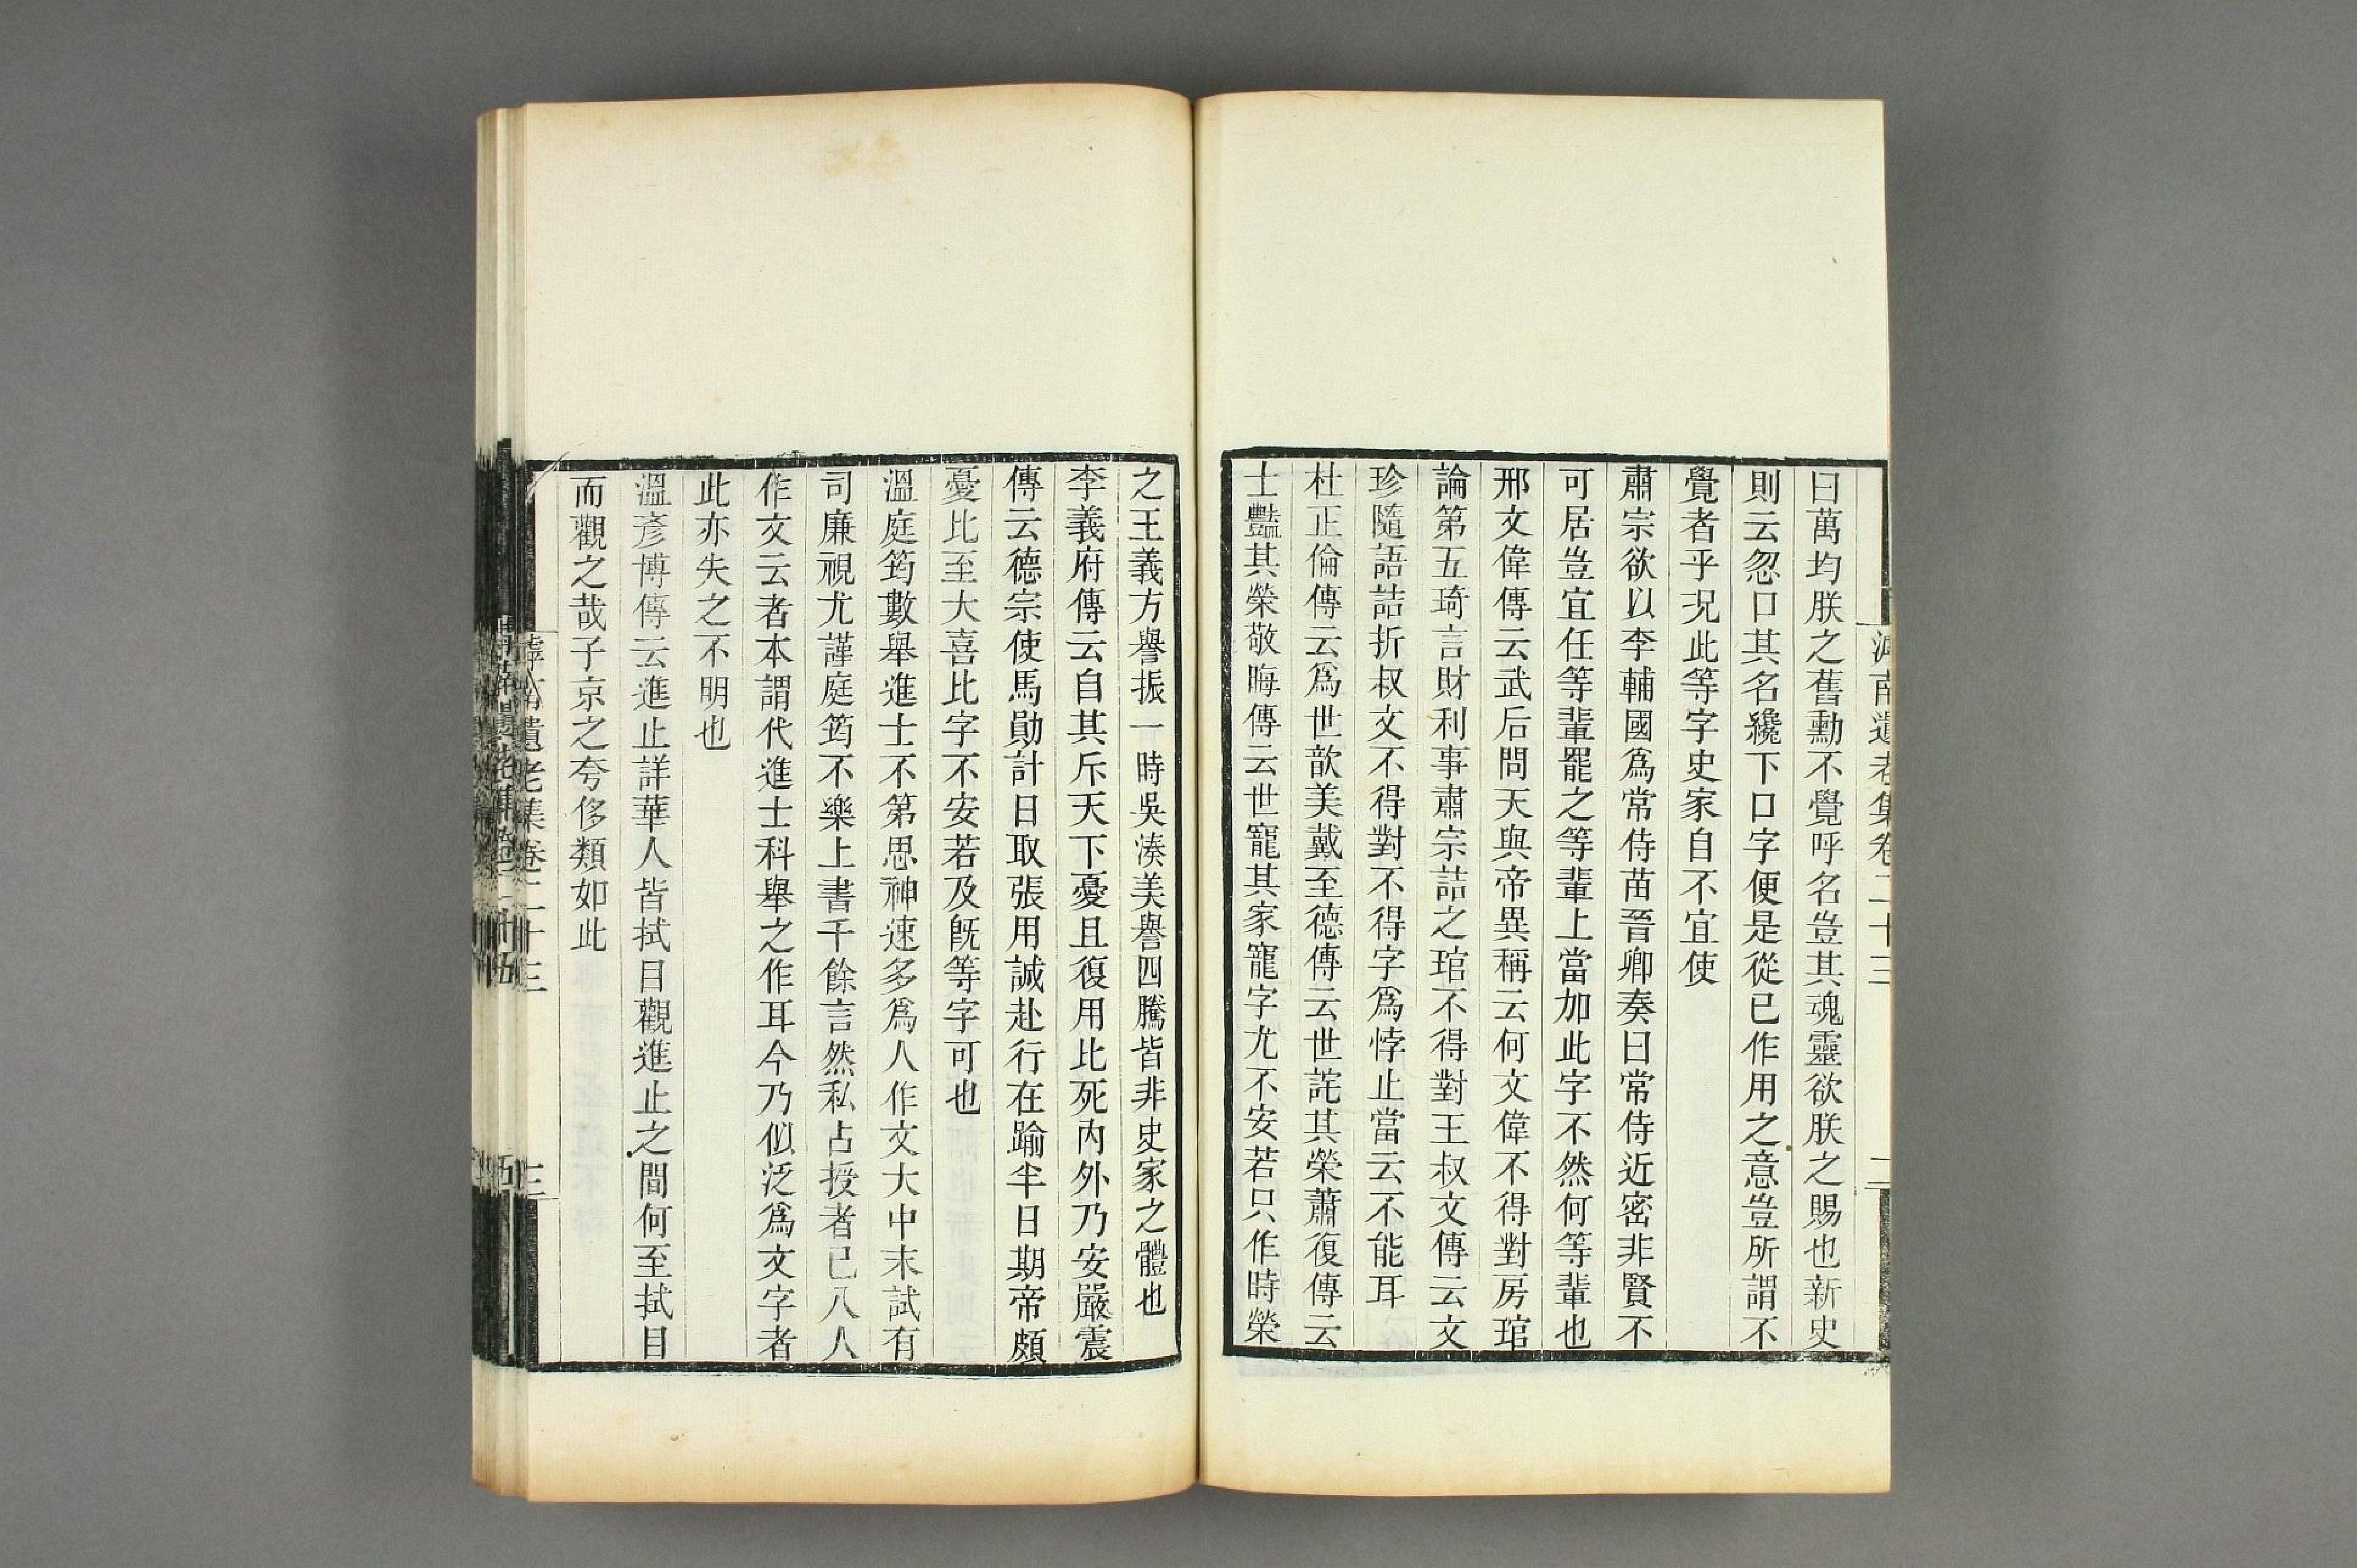 滹南遺老集卷二十三
二
曰萬均朕之舊勳不覺呼名豈其魂靈欲朕之賜也新史
則云忽口其名纔下口字便是從已作用之意豈所謂不
覺者乎況此等字史家自不宜使
肅宗欲以李輔國爲常侍苗晉卿奏曰常侍近密非賢不
可居豈宜任等輩罷之等輩上當加此字不然何等輩也
邢文偉傳云武后問天與帝異稱云何文偉不得對房琯
論第五琦言財利事肅宗詰之琯不得對王叔文傳云文
珍隨語詰折叔文不得對不得字爲悖止當云不能耳
杜正倫傳云爲世歆美戴至德傳云世詫其榮蕭復傳云
士豔其榮敬晦傳云世寵其家寵字尤不安若只作時榮
之王義方譽振一時吳湊美譽四騰皆非史家之體也
李義府傳云自其斥天下憂且復用比死內外乃安嚴震
傳云德宗使馬勛計日取張用誠赴行在踰半日期帝頗
憂比至大喜比字不安若及旣等字可也
溫庭筠數舉進士不第思神速多爲人作文大中末試有
司廉視尤謹庭筠不樂上書千餘言然私占授者已八人
作文云者本謂代進士科舉之作耳今乃似泛爲文字者
此亦失之不明也
溫彥博傳云進止詳華人皆拭目觀進止之間何至拭目
而觀之哉子京之夸侈類如此
滹南遺老集卷二十三
三